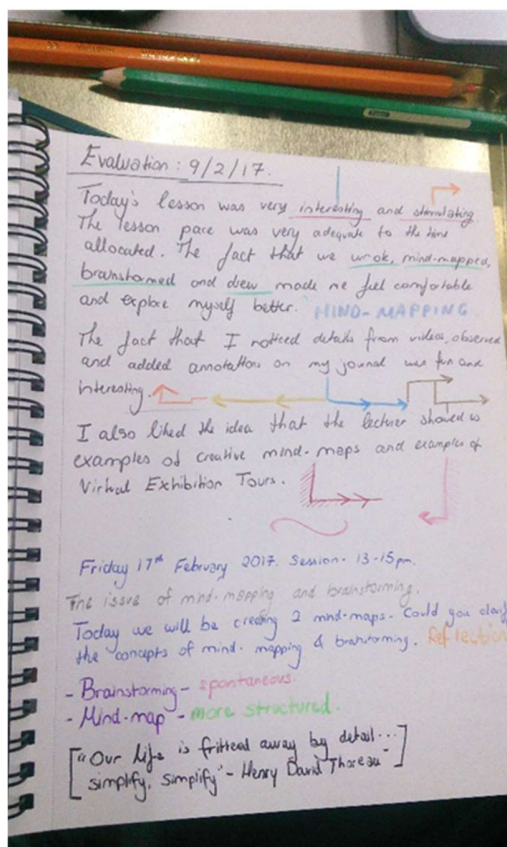 Evaluation : 9/2/17.
Today's lesson was very interesting and stimulating.
The lesson pace was very adequate to the time
allocated. The fact that we wrok, mind-mapped,
brainstormed and drew made me feel comfortable
and explore myself better. MIND-MAPPING
The fact that I noticed details from videos, observed
and added annotations on my journal was fun and
interesting.
I also liked the idea that the lecturer showed us
examples of creative mind-maps and examples of
Virtual Exhibition Tours.
Friday 17th February 2017. Session - 13-15pm.
The issue of mind-mapping and brainstorming.
Today we will be creating 2 mind-maps. Could you clarify
the concepts of mind-mapping & brainstorming. Reflection
- Brainstorming - spontaneous.
- Mind-map - more structured.
["Our life is frittead away by detail...
simplify, simplify" - Henry David Thoreau]